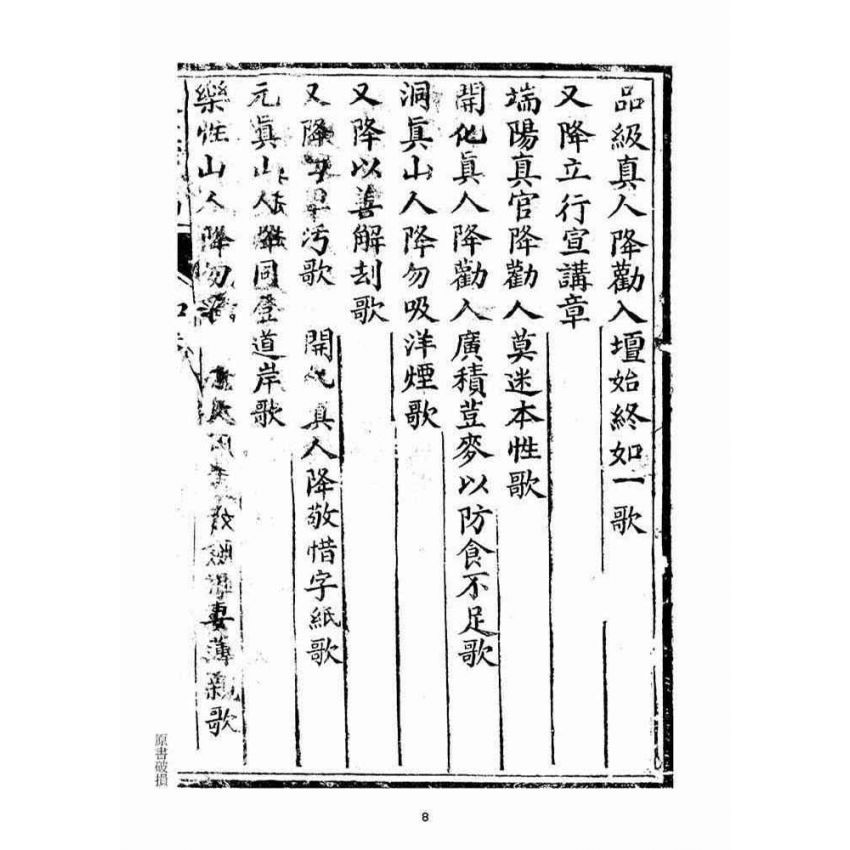 品級真人降勸入壇始終如一歌
又降立行宣講章
端陽真官降勸人莫迷本性歌
開化眞人降勸人廣積荳麥以防食不足歌
洞眞山人降勿吸洋煙歌
又降以善解刦歌
又降 汚歌 開化真人降敬惜字紙歌
元眞山人降同登道岸歌
樂性山人降勿 妻薄親歌
原書破損
8